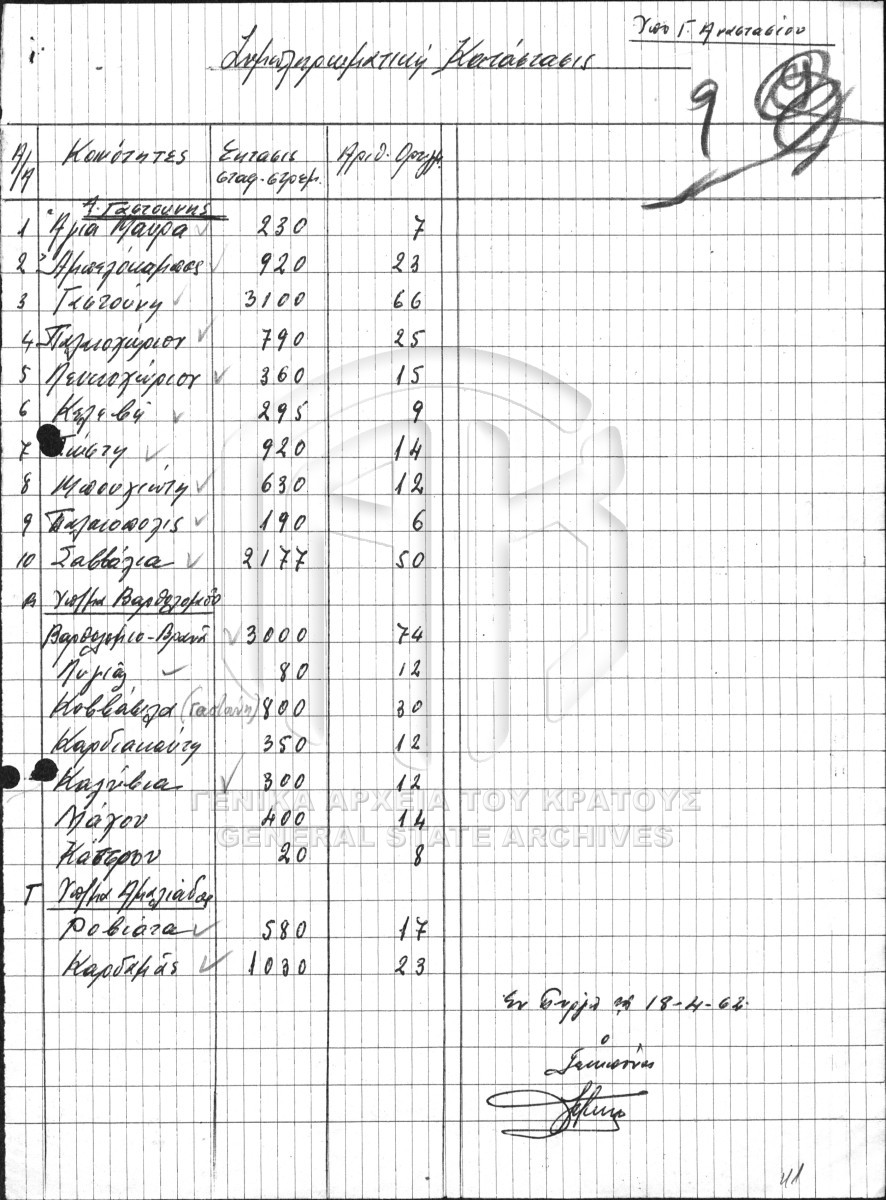 Υπο Γ. Αναστασίου
Συμπληρωματική Κατάστασις
9
Α/Α Κοινότητες Έκτασις σταφ. στρεμ. Αριθ.
Α. Γαστούνης
1 Αγία Μαύρα 230 7
2 Αμπελόκαμπος 920 23
3 Γαστούνη 3100 66
4 Παλαιοχώριον 790 25
5 Λευκοχώριον 360 15
6 Κελεβή 295 9
7 920 14
8 Μπουχιώτη 630 12
9 Παλαιόπολις 190 6
10 Σαββάλια 2177 50
Β Υποβμα Βαρθολομιό
Βαρθολομιό-Βρανά 3000 74
80 12
Καββάσιλα (Γαστούνη) 800 30
Καρδιακαύτη 350 12
Καλύβια 300 12
Μάχου 400 14
Κάστρου 20 8
Γ Υποβμα Αμαλιάδος
Ροβιάτα 580 17
Καρδαμάς 1030 23
Εν Πύργω τη 18-4-62
Ο
Γεωπόνος
41
ΓΕΝΙΚΑ ΑΡΧΕΙΑ ΤΟΥ ΚΡΑΤΟΥΣ
GENERAL STATE ARCHIVES